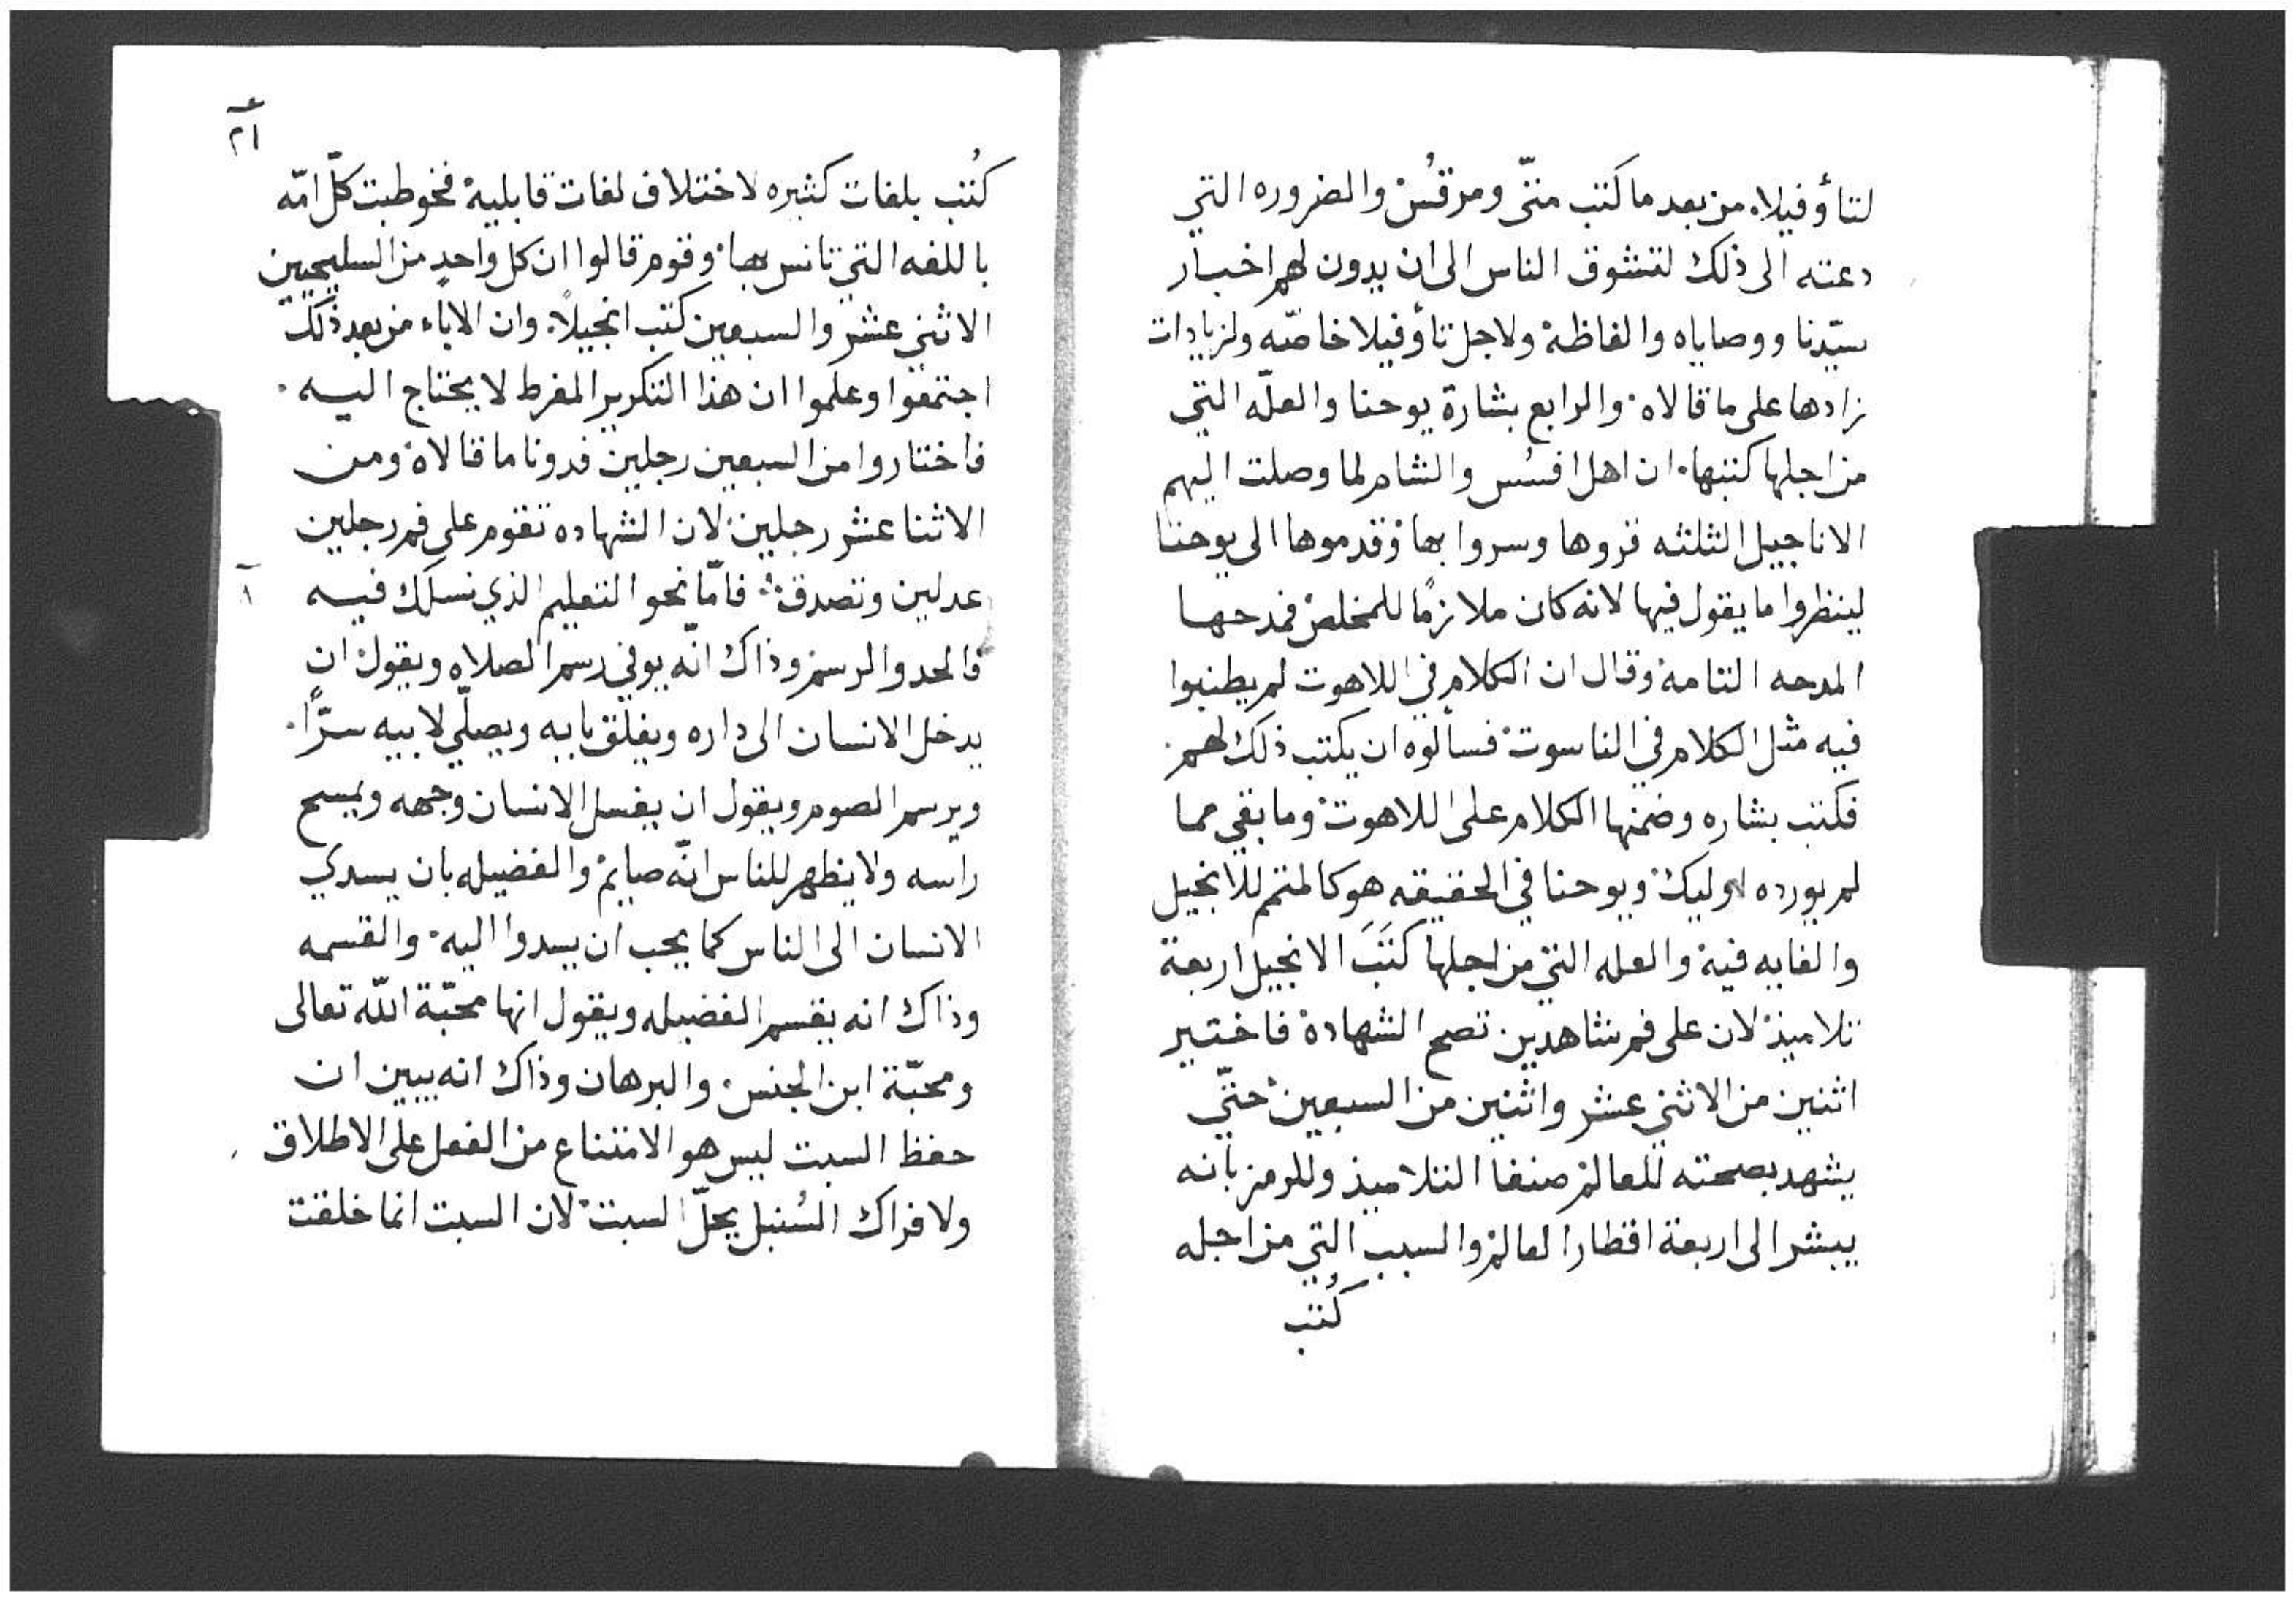 لتاؤفيلا. من بعد ما كتب متّى ومرقُس والضروره التي
دعته الى ذلك لتشوق الناس الى ان يدون لهم اخبار
سيّدنا ووصاياه والفاظه ولاجل تاؤفيلا خاصّه ولزيادات
زادها على ما قالاه. والرابع بشارة يوحنا والعلّه التي
من اجلها كتبها. ان اهل افسُس والشام لما وصلت اليهم
الاناجيل الثلثه قروها وسروا بها وقدموها الى يوحنا
لينظروا ما يقول فيها لانه كان ملازمًا للمخلص فمدحها
المدحه التامه وقال ان الكلام في اللاهوت لم يطنبوا
فيه مثل الكلام في الناسوت فسألوه ان يكتب ذلك لهم.
فكتب بشاره وضمنها الكلام على اللاهوت وما بقي مما
لم يورده اوليك ويوحنا في الحقيقه هو كالمتمم للانجيل
والغايه فيه والعله التي من اجلها كَتَبَ الانجيل اربعة
تلاميذ لان على فم شاهدين تصح الشهادة فاختير
اثنين من الاثني عشر واثنين من السبعين حتّى
يشهد بصحته للعالم صنفا التلاميذ وللرمز بانه
يبشر الى اربعة اقطار العالم والسبب التي من اجله
كُتب
٢١
كُتب بلغات كثيره لاختلاف لغات قابليه فخوطبت كلّ امّه
باللغه التي تانس بها. وقوم قالوا ان كل واحدٍ من السليحيين
الاثني عشر والسبعين كتب انجيلاً. وان الاباء من بعد ذلك
اجتمعوا وعلموا ان هذا التكرير المفرط لا يحتاج اليه.
فاختاروا من السبعين رجلين فدونا ما قالاه ومن
الاثنا عشر رجلين لان الشهاده تقوم على فم رجلين
عدلين وتصدق. فامّا نحو التعليم الذي نسلك فيه
فالحد والرسم وذاك انّه يوفي رسم الصلاه ويقول ان
يدخل الانسان الى داره ويغلق بابه ويصلّي لابيه سرّاً.
ويرسم الصوم ويقول ان يغسل الانسان وجهه ويمسح
راسه ولا يظهر للناس انّه صايم والفضيله بان يسدي
الانسان الى الناس كما يحب ان يسدوا اليه. والقسمه
وذاك انه يقسم الفضيله ويقول انها محبّة اللّه تعالى
ومحبّة ابن الجنس والبرهان وذاك انه يبين ان
حفظ السبت ليس هو الامتناع من الفعل على الاطلاق
ولا فراك السُنبل يحلّ السبت لان السبت انما خلقت